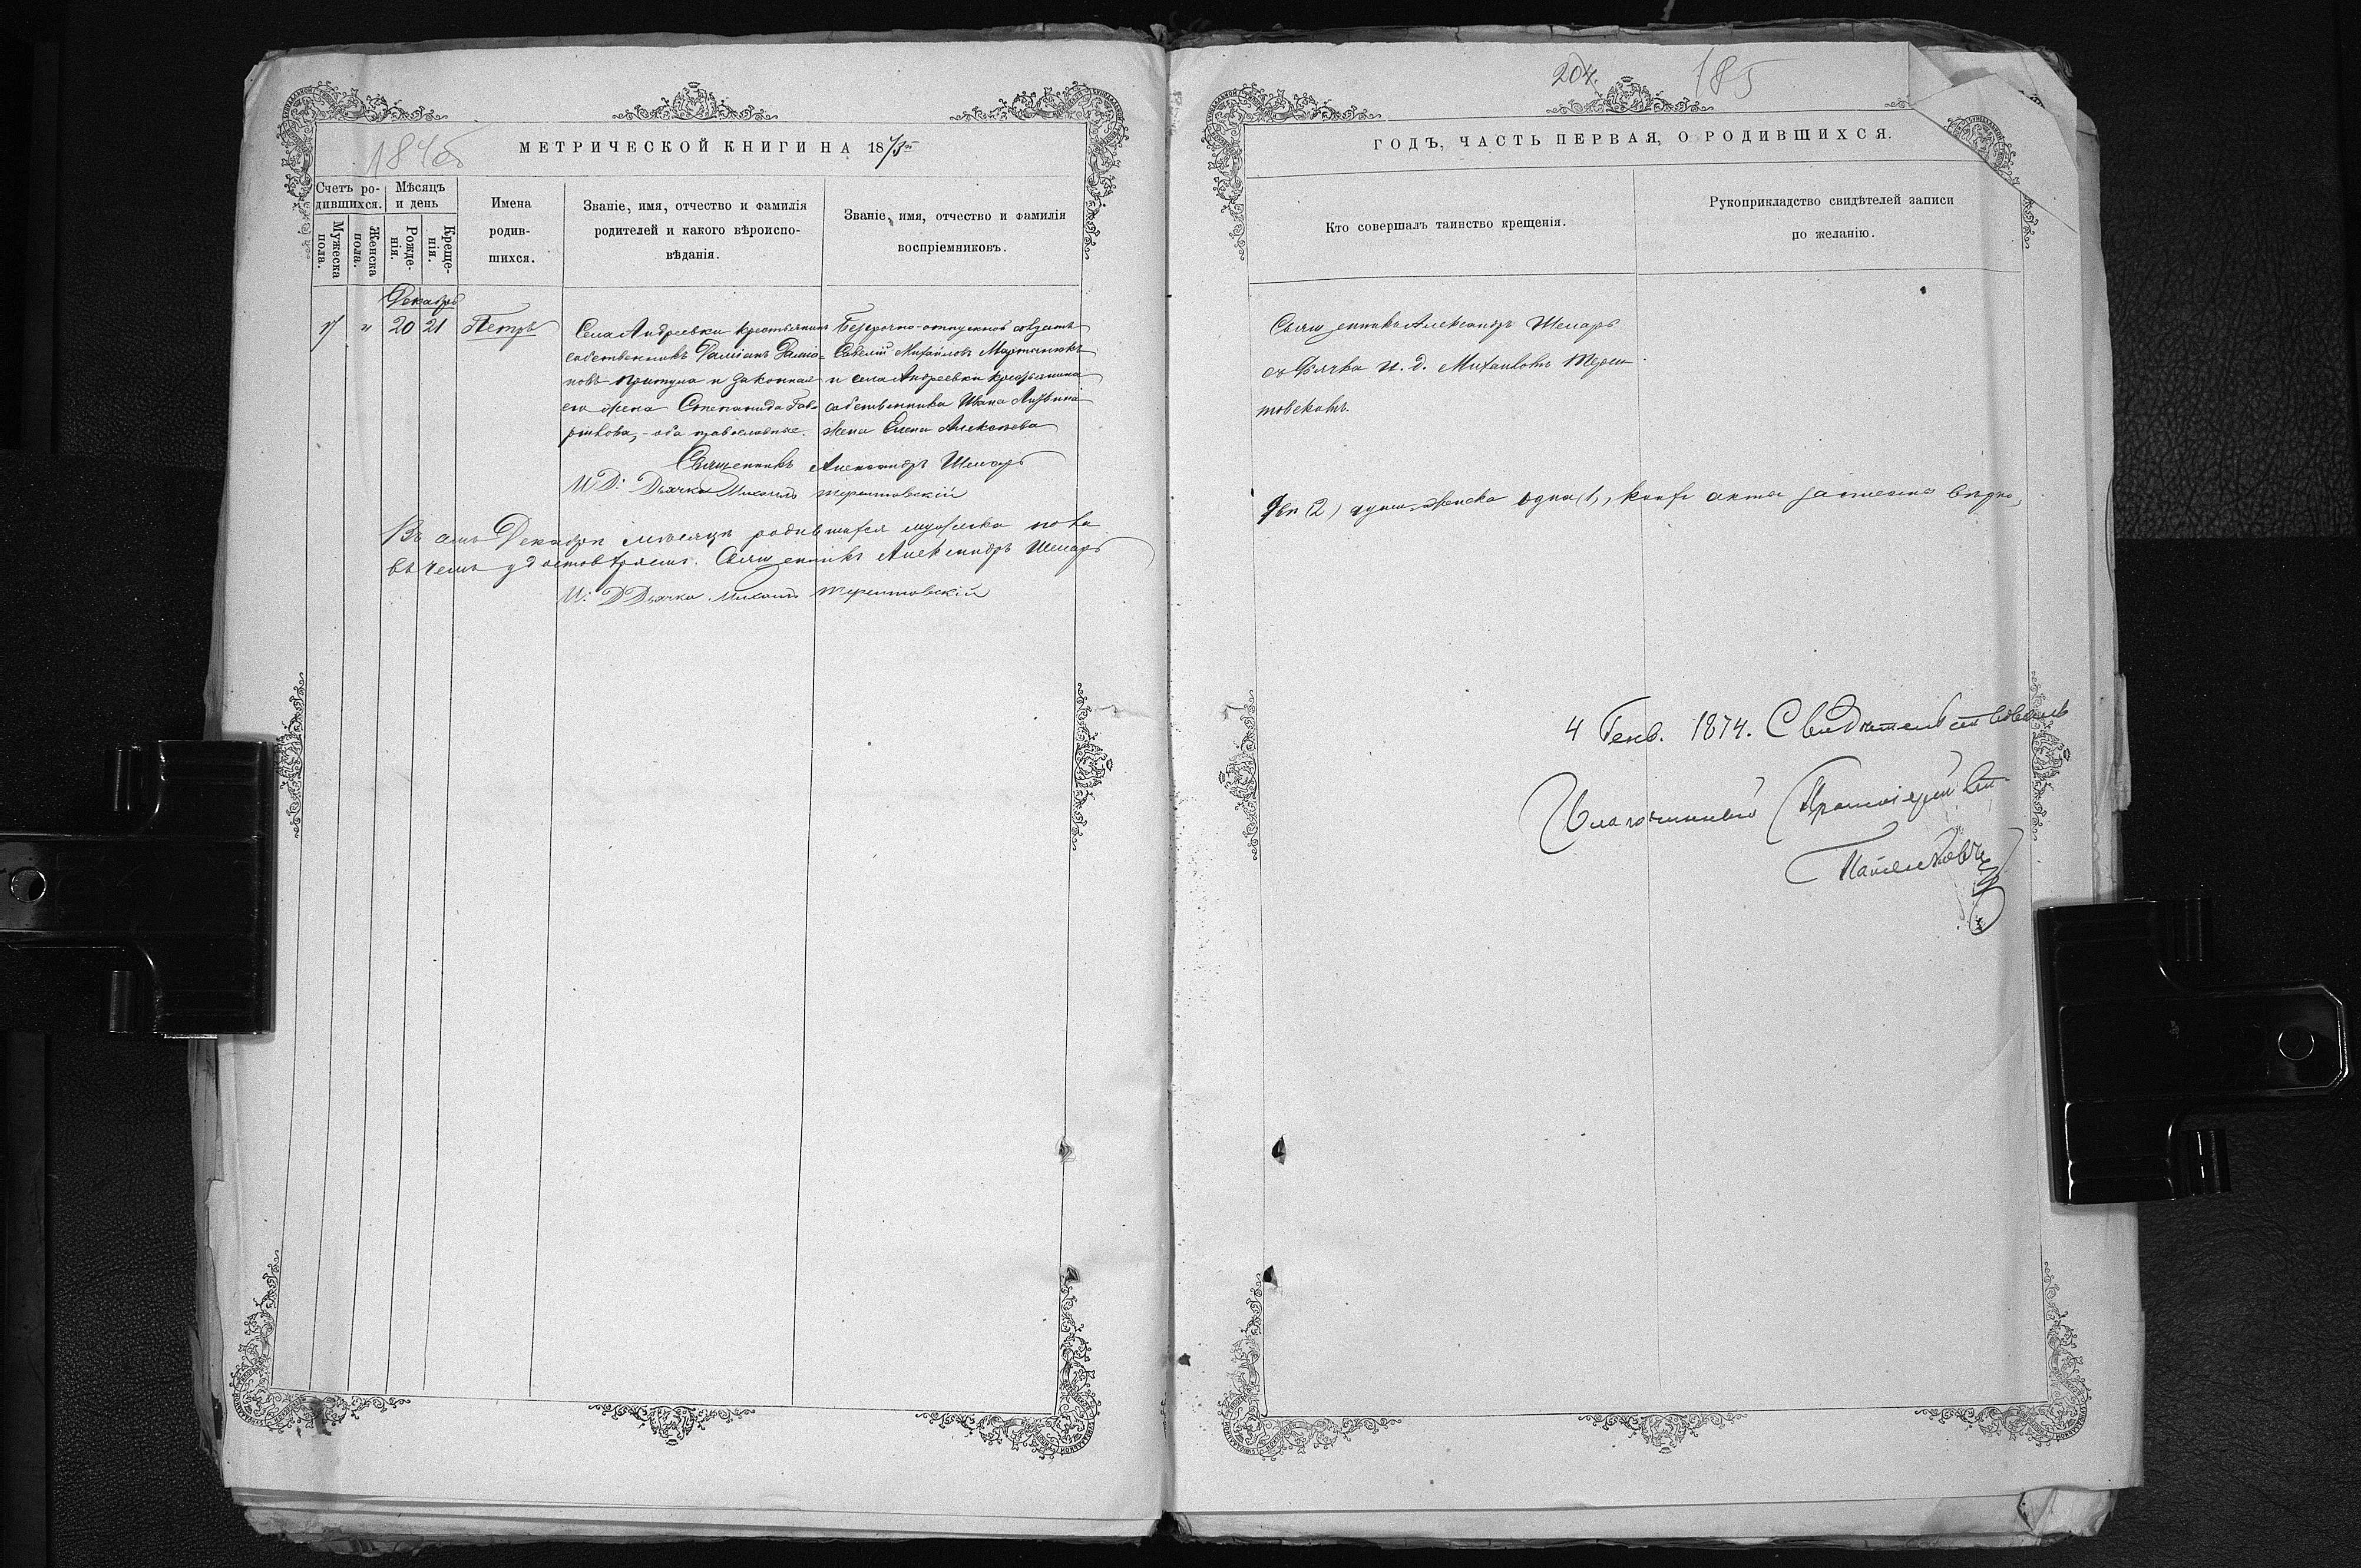 1846
МЕТРИЧЕСКОЙ КНИГИ НА 1873й
Счетъ ро-
дившихся.
Мужеска
пола.
Женска
пола.
Мѣсяцъ
и день
Рожде-
нія.
Креще-
нія.
Имена
родив-
шихся.
Званіе, имя, отчество и фамилія
родителей и какого вѣроиспо-
вѣданія.
Званіе, имя, отчество и фамилія
воспріемниковъ.
Декабрь
" 20 21 Петръ
Села Андреевки крестьянинъ
собственникъ Даміанъ Даміа-
новъ Притула и законная
его жена Степанида Гав-
рилова, - оба православные.
Безсрочно-отпускной солдатъ
Савелій Михайловъ Мартынюкъ
и села Андреевки крестьянина
собственника Ивана
жена Елена Алексѣева
Священникъ Александръ
И. Д. Дьячка Михаилъ
Въ семъ Декабрѣ мѣсяцѣ родившихся мужеска пола
въ чемъ удостовѣряемъ. Священникъ Александръ
И. Д Дьячка Михаилъ
204.
185
ГОДЪ, ЧАСТЬ ПЕРВАЯ, О РОДИВШИХСЯ.
Кто совершалъ таинство крещенія.
Рукоприкладство свидѣтелей записи
по желанію.
Священникъ Александръ
съ Дьячка и. д. Михаиломъ
товскимъ.
Двѣ (2) души женска одна (1), акты записаны вѣрно,
4 Генв. 1874. Свидѣтельствовалъ
Благочинный Протоіерей